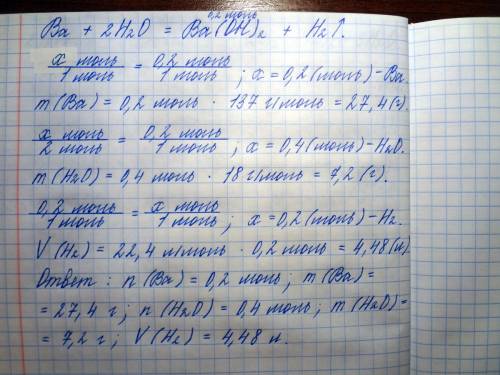 0,2 моль
Ba + 2H₂O = Ba(OH)₂ + H₂↑.
x моль / 1 моль = 0,2 моль / 1 моль ; x = 0,2 (моль) - Ba.
m (Ba) = 0,2 моль · 137 г/моль = 27,4 (г).
x моль / 2 моль = 0,2 моль / 1 моль ; x = 0,4 (моль) - H₂O.
m (H₂O) = 0,4 моль · 18 г/моль = 7,2 (г).
0,2 моль / 1 моль = x моль / 1 моль ; x = 0,2 (моль) - H₂.
V (H₂) = 22,4 л/моль · 0,2 моль = 4,48 (л).
Ответ : n (Ba) = 0,2 моль ; m (Ba) =
= 27,4 г ; n (H₂O) = 0,4 моль ; m (H₂O) =
= 7,2 г ; V (H₂) = 4,48 л.